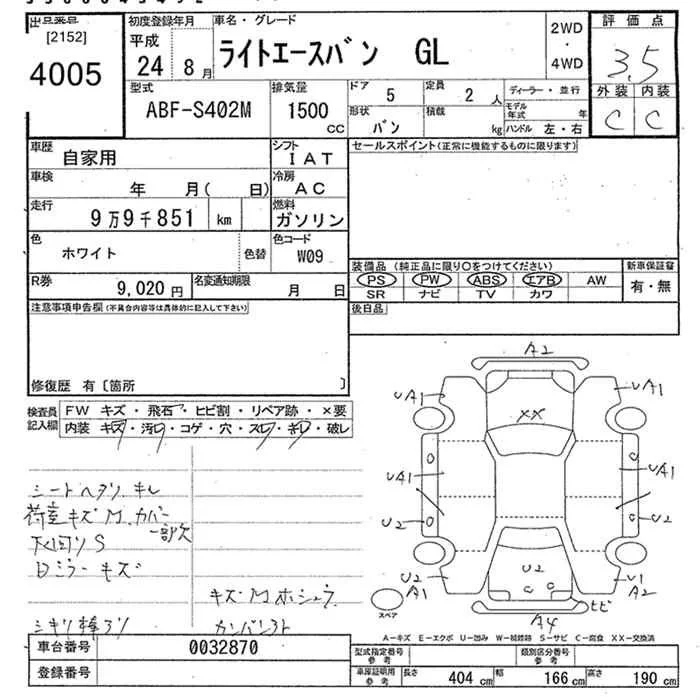 出品番号
[2152]
4005
初度登録年月
平成
24 8月
車名・グレード
ライトエースバン GL
2WD
・
4WD
評価点
3.5
外装 内装
C C
型式
ABF-S402M
排気量
1500
cc
ドア
5
定員
2 人
形状
バン
積載
kg
ディーラー・並行
モデル年式 年
ハンドル 左・右
車歴
自家用
シフト
IAT
車検
年 月( 日)
冷房
AC
走行
9万9千851 km
燃料
ガソリン
色
ホワイト
色替
色コード
W09
R券
9,020 円
名変通知期限
月 日
セールスポイント(正常に機能するものに限ります)
装備品 (純正品に限り○をつけてください)
PS PW ABS エアB AW
SR ナビ TV カワ
新車保証書
有・無
後日品
注意事項申告欄(不具合内容等は具体的に記入して下さい)
修復歴 有〔箇所 〕
検査員
記入欄
FW キズ・飛石・ヒビ割・リペア跡・×要
内装 キズ・汚レ・コゲ・穴・スレ・キレ・破レ
シートヘタリ、キレ
荷室キズM、カバー
一部欠
下回りS
Dミラーキズ
キズMホシュウ
シキリ棒アリ
カンバンアト
A2
UA1
UA1
XX
UA1
UA1
U2
U2
U2
A1
U2
U1
A2
ヒビ
A4
スペア
A―キズ E―エクボ U―凹み W―補修跡 S―サビ C―腐食 XX―交換済
車台番号
0032870
登録番号
型式指定番号
参考
類別区分番号
参考
車庫証明用
参考
長さ 404 cm 幅 166 cm 高さ 190 cm